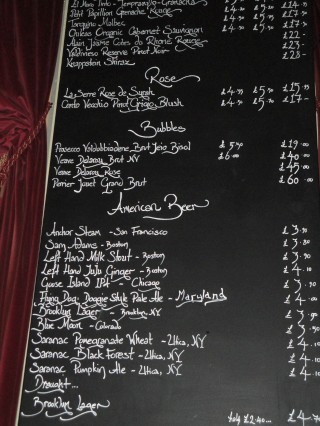 El Vino Tinto - Tempranillo - Granacha
Petit Papillon Grenache Rouge £4.30 £5.70 £15.-
Tarquino Malbec £4.50 £17.-
Onkao Organic Cabernet Sauvignon £22-
Alain Jaume Cotes du Rhone Rouge £22-
Valdivieso Reserve Pinot Noir £23-
Kecappation Shiraz £25-
Rose
La Serre Rose de Syrah £4.35 £5.70 £15.75
Conto Vecchio Pinot Grigio Blush £4.50 £5.95 £17-
Bubbles
Prosecco Valdobbiadene Brut Jeio Bisol £5.50 £19.00
Veuve Delaroy Brut NV £6.00 £40.00
Veuve Delaroy Rose £45.00
Perrier Jouet Grand Brut £60.00
American Beer
Anchor Steam - San Francisco
Sam Adams - Boston
Left Hand Milk Stout - Boston
Left Hand JuJu Ginger - Boston
Goose Island IPA - Chicago
Flying Dog Doggie Style Pale Ale - Maryland
Brooklyn Lager - Brooklyn, NY
Blue Moon - Colorado
Saranac Pomegranate Wheat - Utica, NY
Saranac Black Forest - Utica, NY £4.10
Saranac Pumpkin Ale - Utica, NY £4.10
Draught...
Brooklyn Lager £2.40...